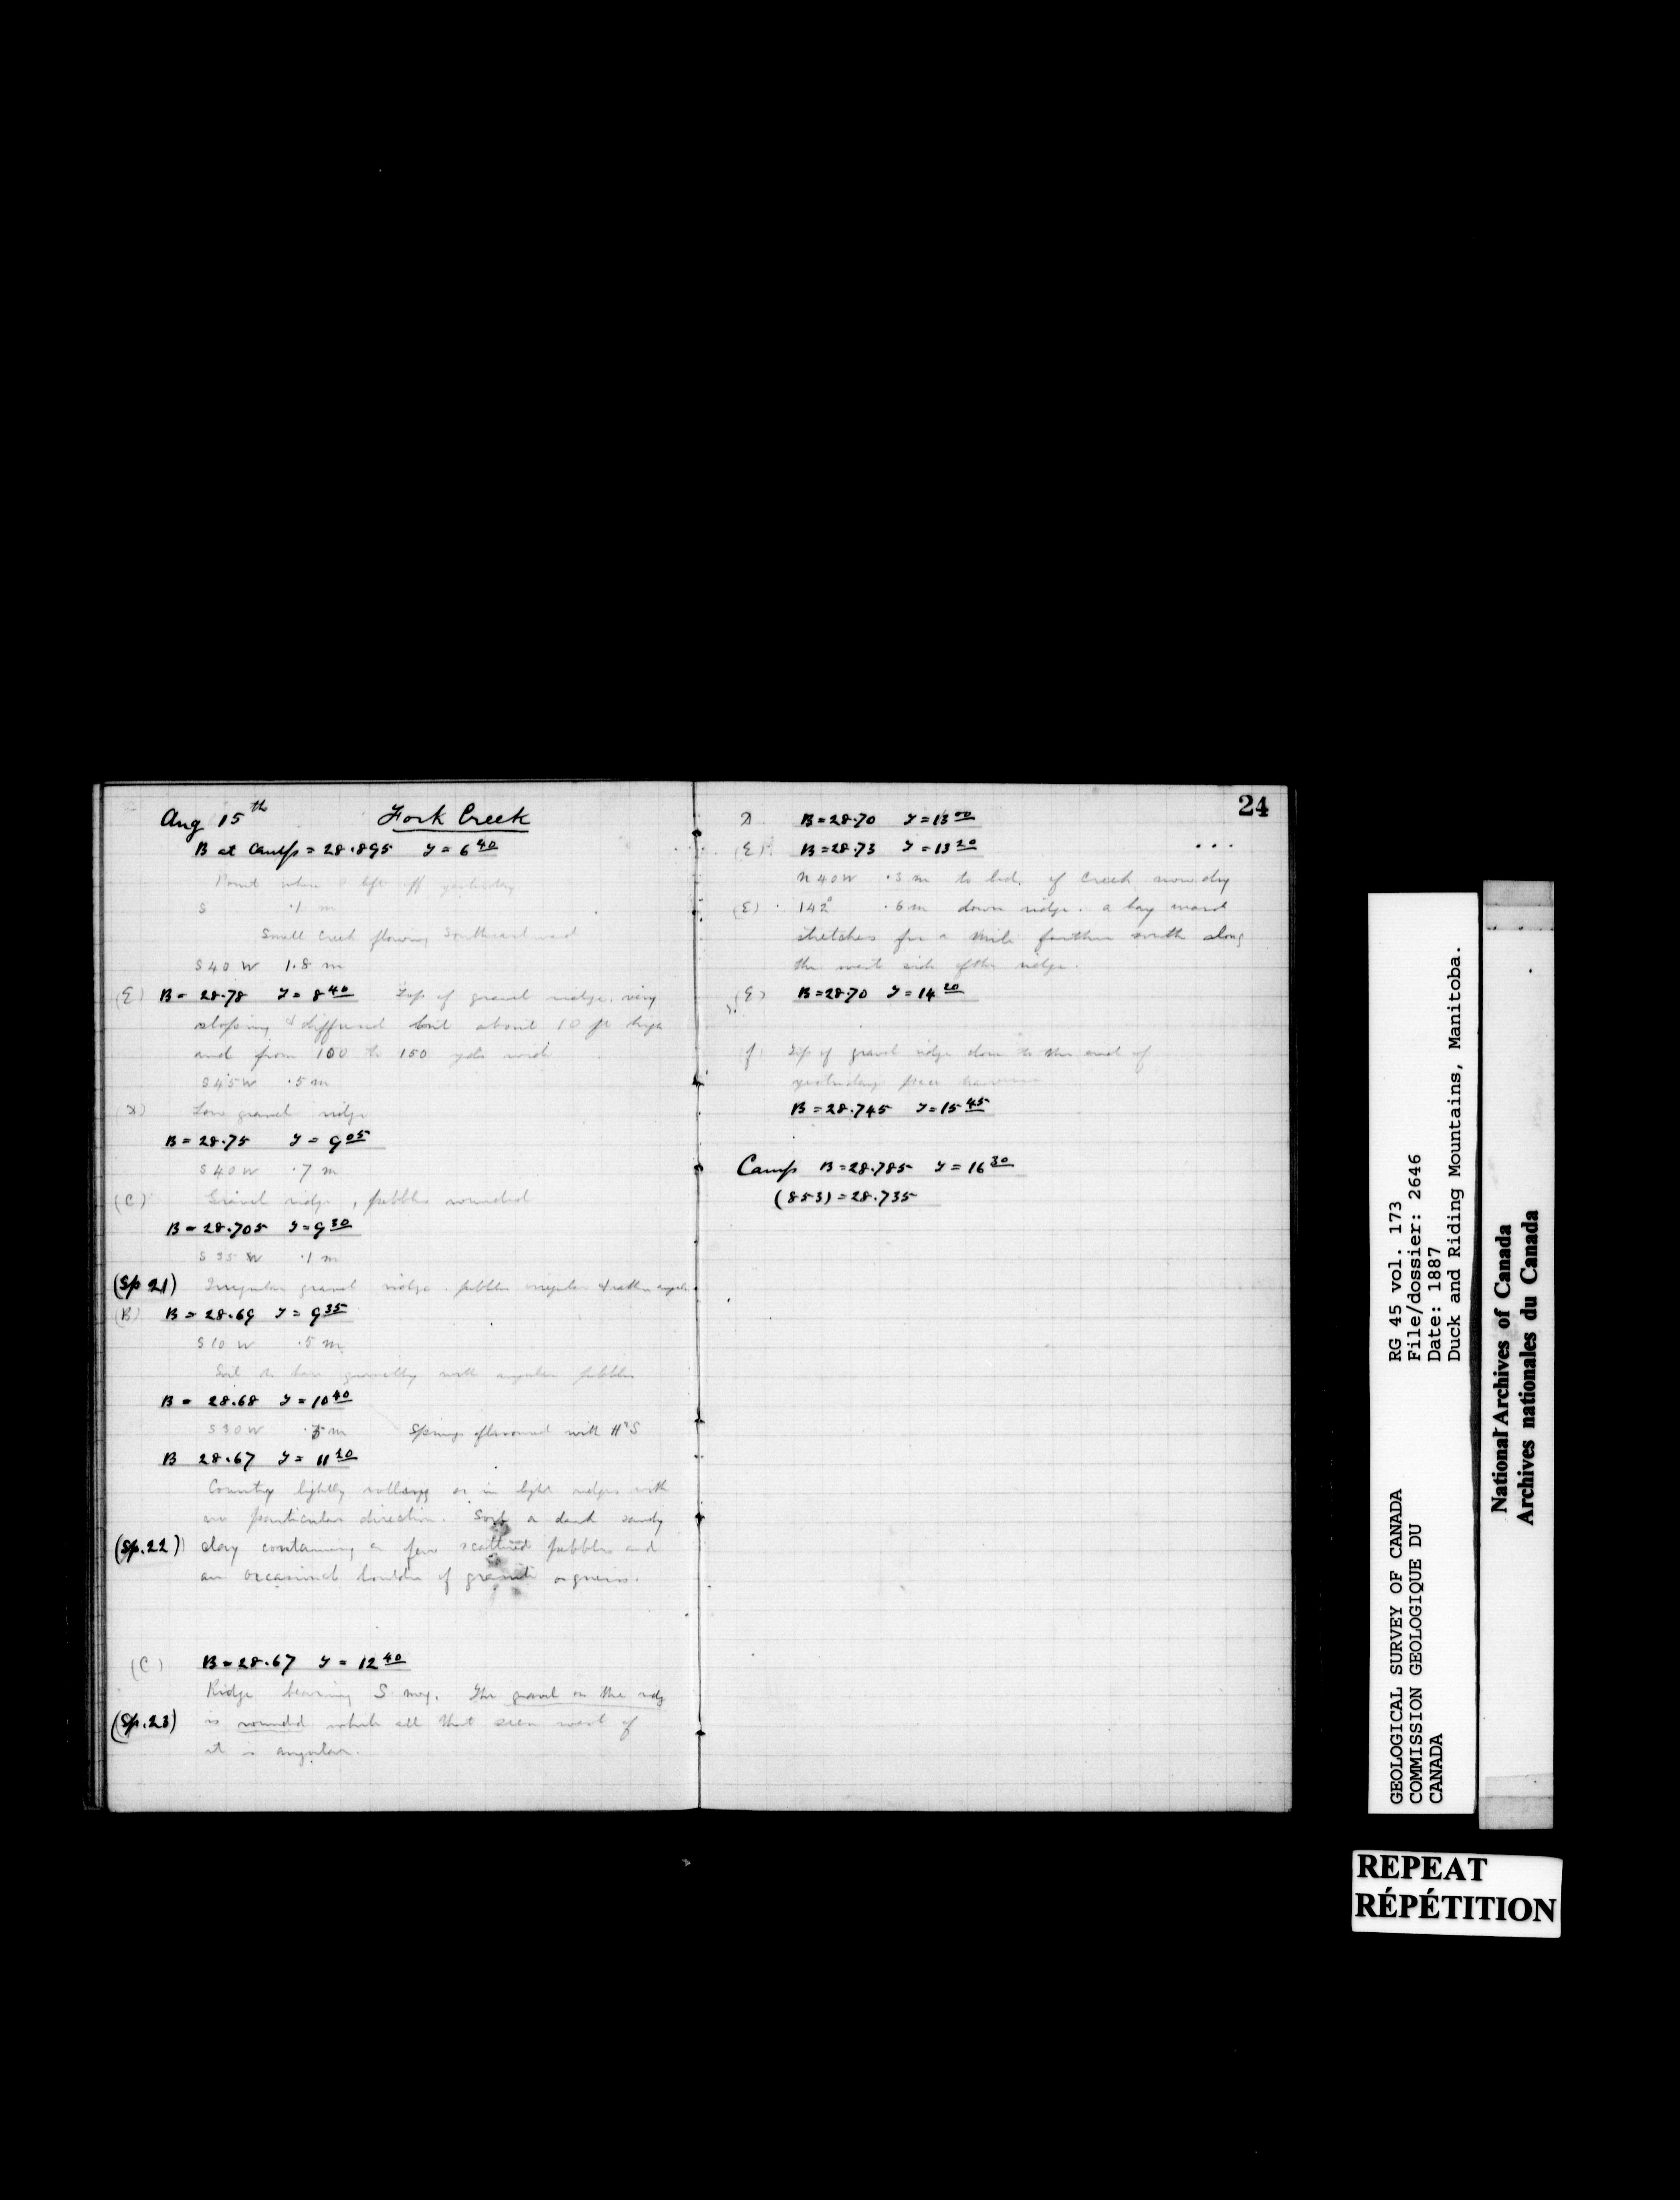 Aug 15th Fork Creek
B at Camp = 28.895 T = 6 40
Point where I left off yesterday
S .1 m
Small Creek flowing Southeastward
S 40 W 1.8 m
(E) B = 28.78 T = 8 40 Top of gravel ridge, very
sloping & diffused but about 10 ft high
and from 100 to 150 yds wide
S 45 W .5 m
Low gravel ridge
B = 28.75 T = 9 05
S 40 W .7 m
(C) Gravel ridge, pebbles rounded
B = 28.705 T = 9 30
S 35 W .1 m
(Sp 21) Irregular gravel ridge. pebbles irregular & rather angular
(B) B = 28.69 T = 9 35
S 10 W .5 m
Soil gravelly with angular pebbles
B = 28.68 T = 10 40
S 30 W m Springs flavoured with H2S
B 28.67 T = 11 20
Country lightly rolling or in light ridges with
no particular direction. Soil a dark sandy
(Sp. 22) clay containing a few scattered pebbles and
an occasional boulder of granite or gneiss.
(C) B = 28.67 T = 12 40
Ridge bearing S mag. The gravel on the ridge
(Sp. 23) is rounded while all that seen west of
it is angular.
24
B = 28.70 T = 13 00
(E) B = 28.73 T = 13 20
N 40 W .3 m to bed of Creek now dry
(E) 142° .6 m down ridge. a hay marsh
stretches for a mile farther south along
the west side of the ridge.
(E) B = 28.70 T = 14 20
(f) Top of gravel ridge close to the end of
yesterday's pace traverse
B = 28.745 T = 15 45
Camp B = 28.785 T = 16 30
(853) = 28.735
GEOLOGICAL SURVEY OF CANADA
COMMISSION GEOLOGIQUE DU
CANADA
RG 45 vol. 173
File/dossier: 2646
Date: 1887
Duck and Riding Mountains, Manitoba.
National Archives of Canada
Archives nationales du Canada
REPEAT
RÉPÉTITION